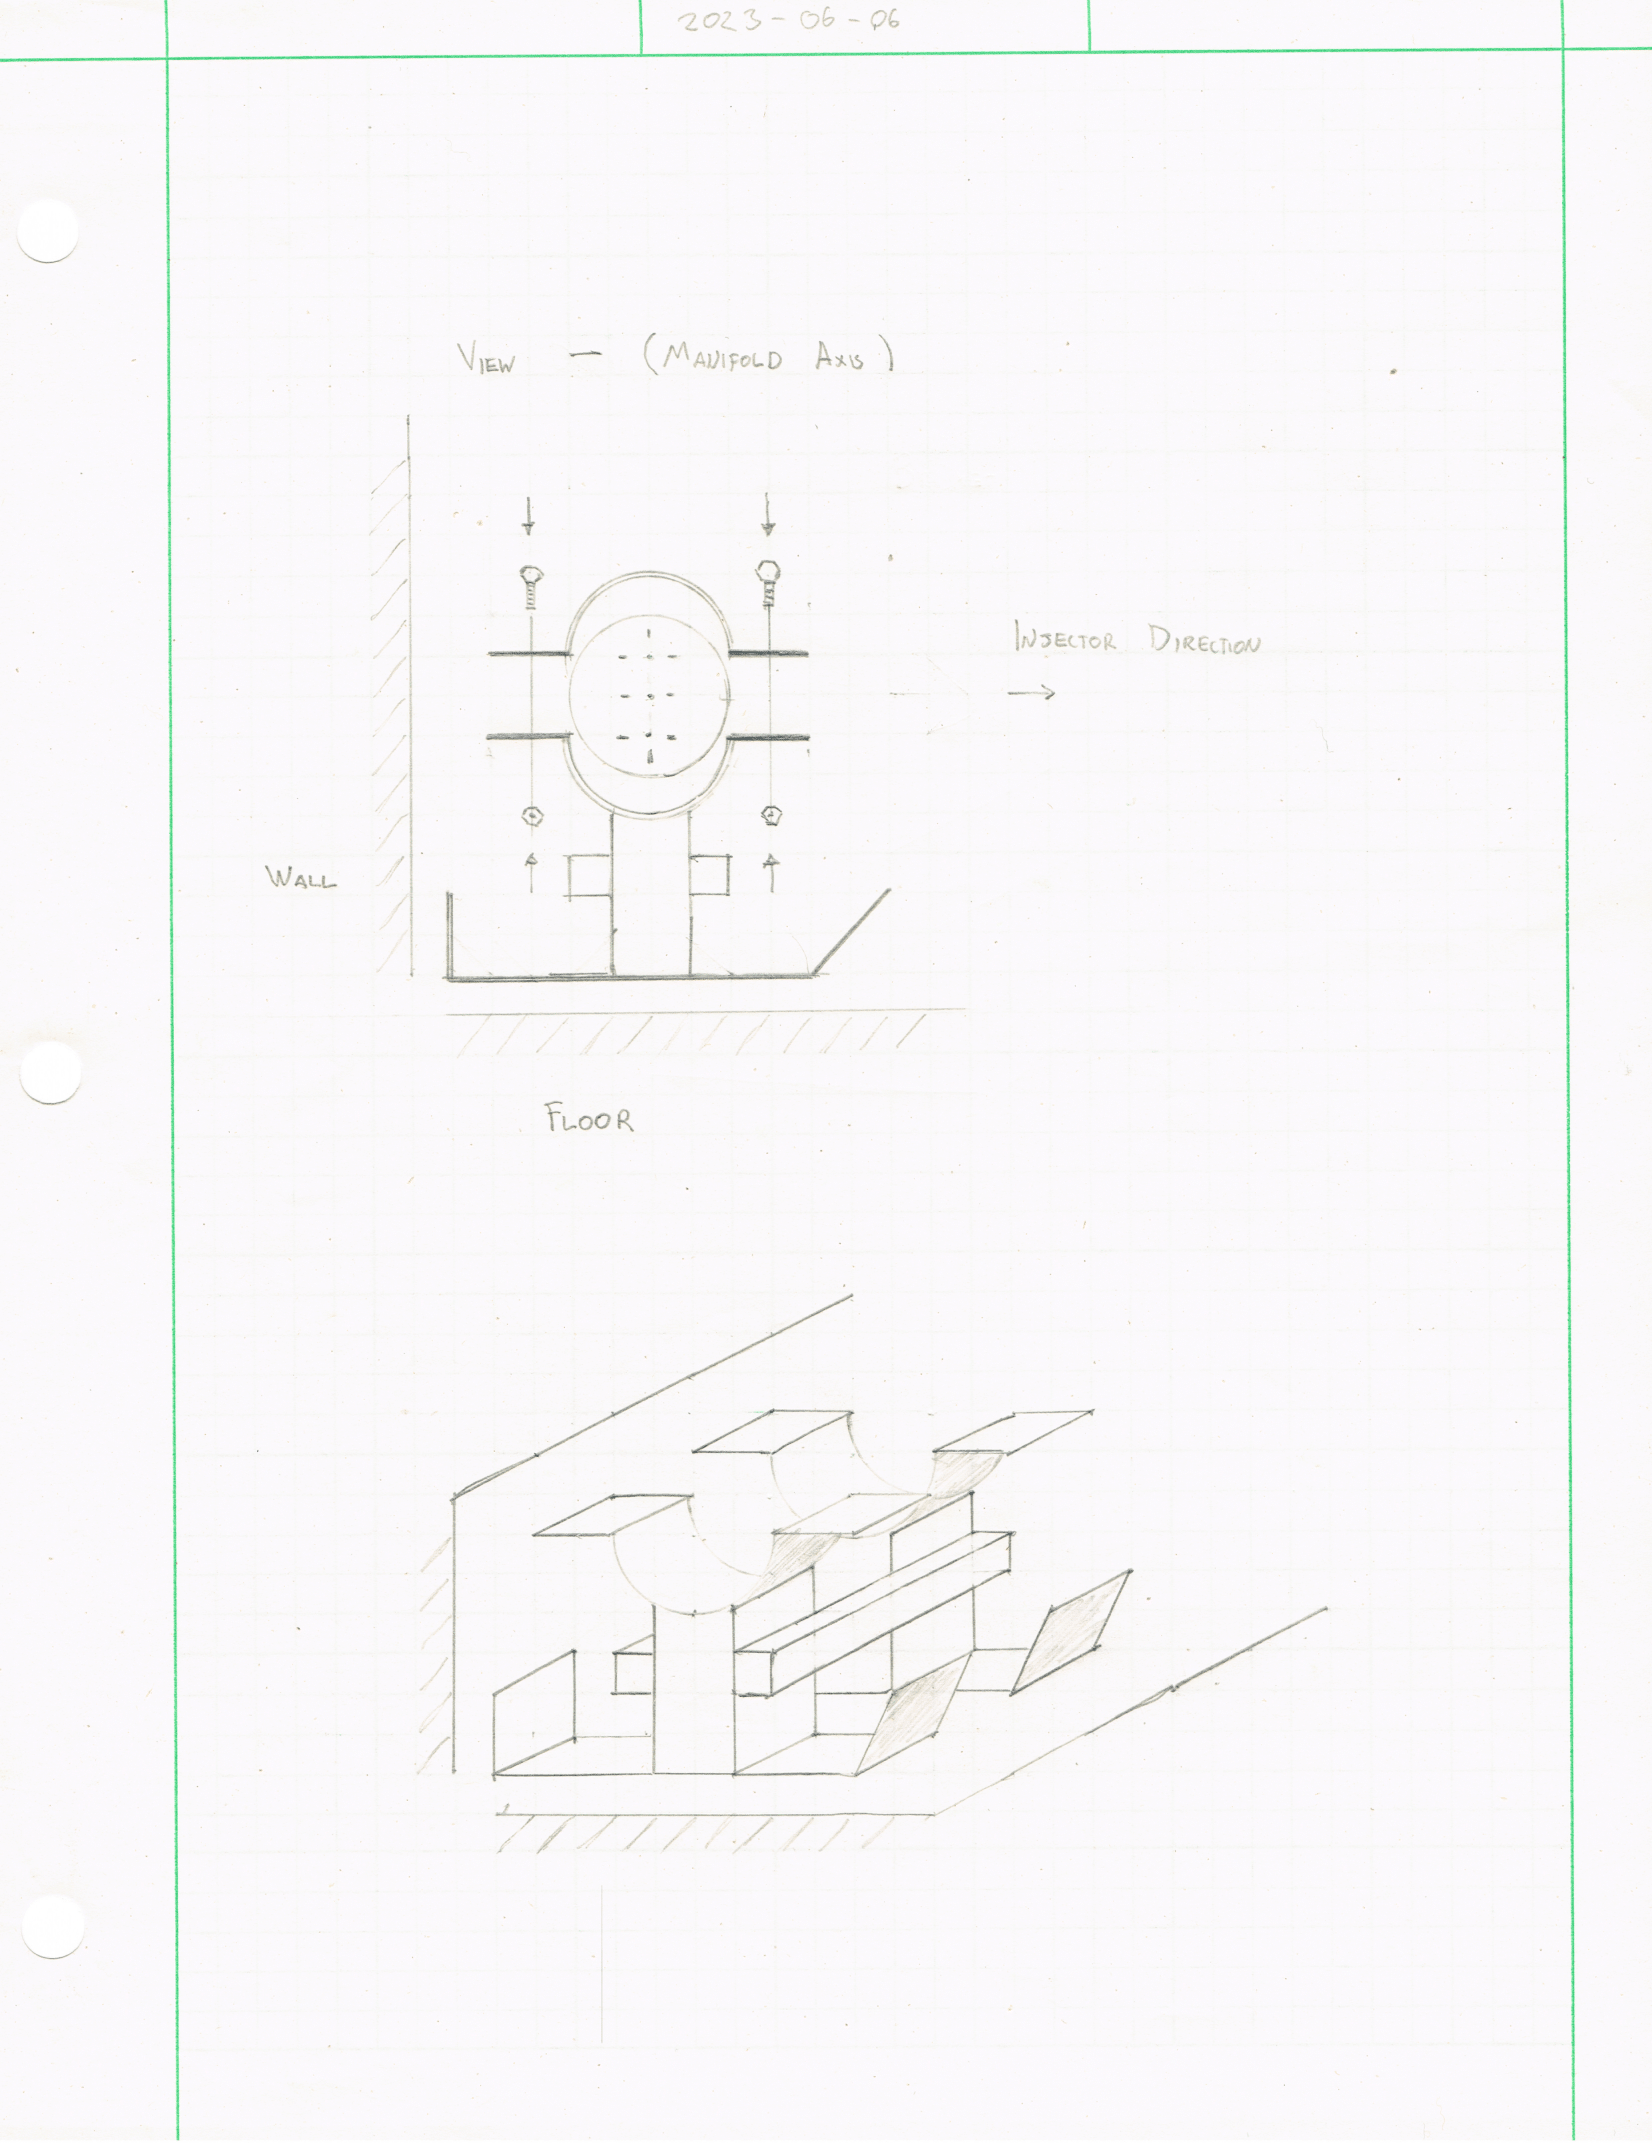 2023-06-06
VIEW - (MANIFOLD AXIS)
INJECTOR DIRECTION
WALL
FLOOR